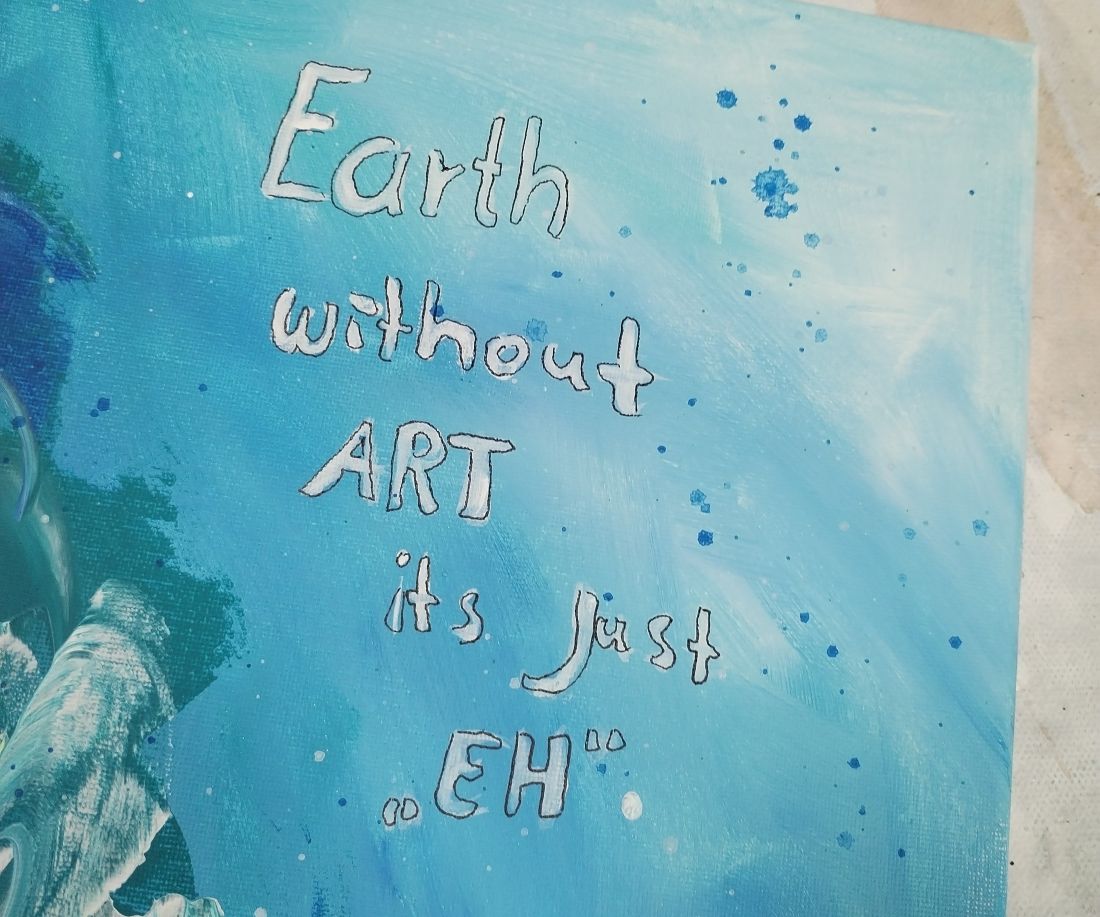 Earth
without
ART
its Just
„EH“.